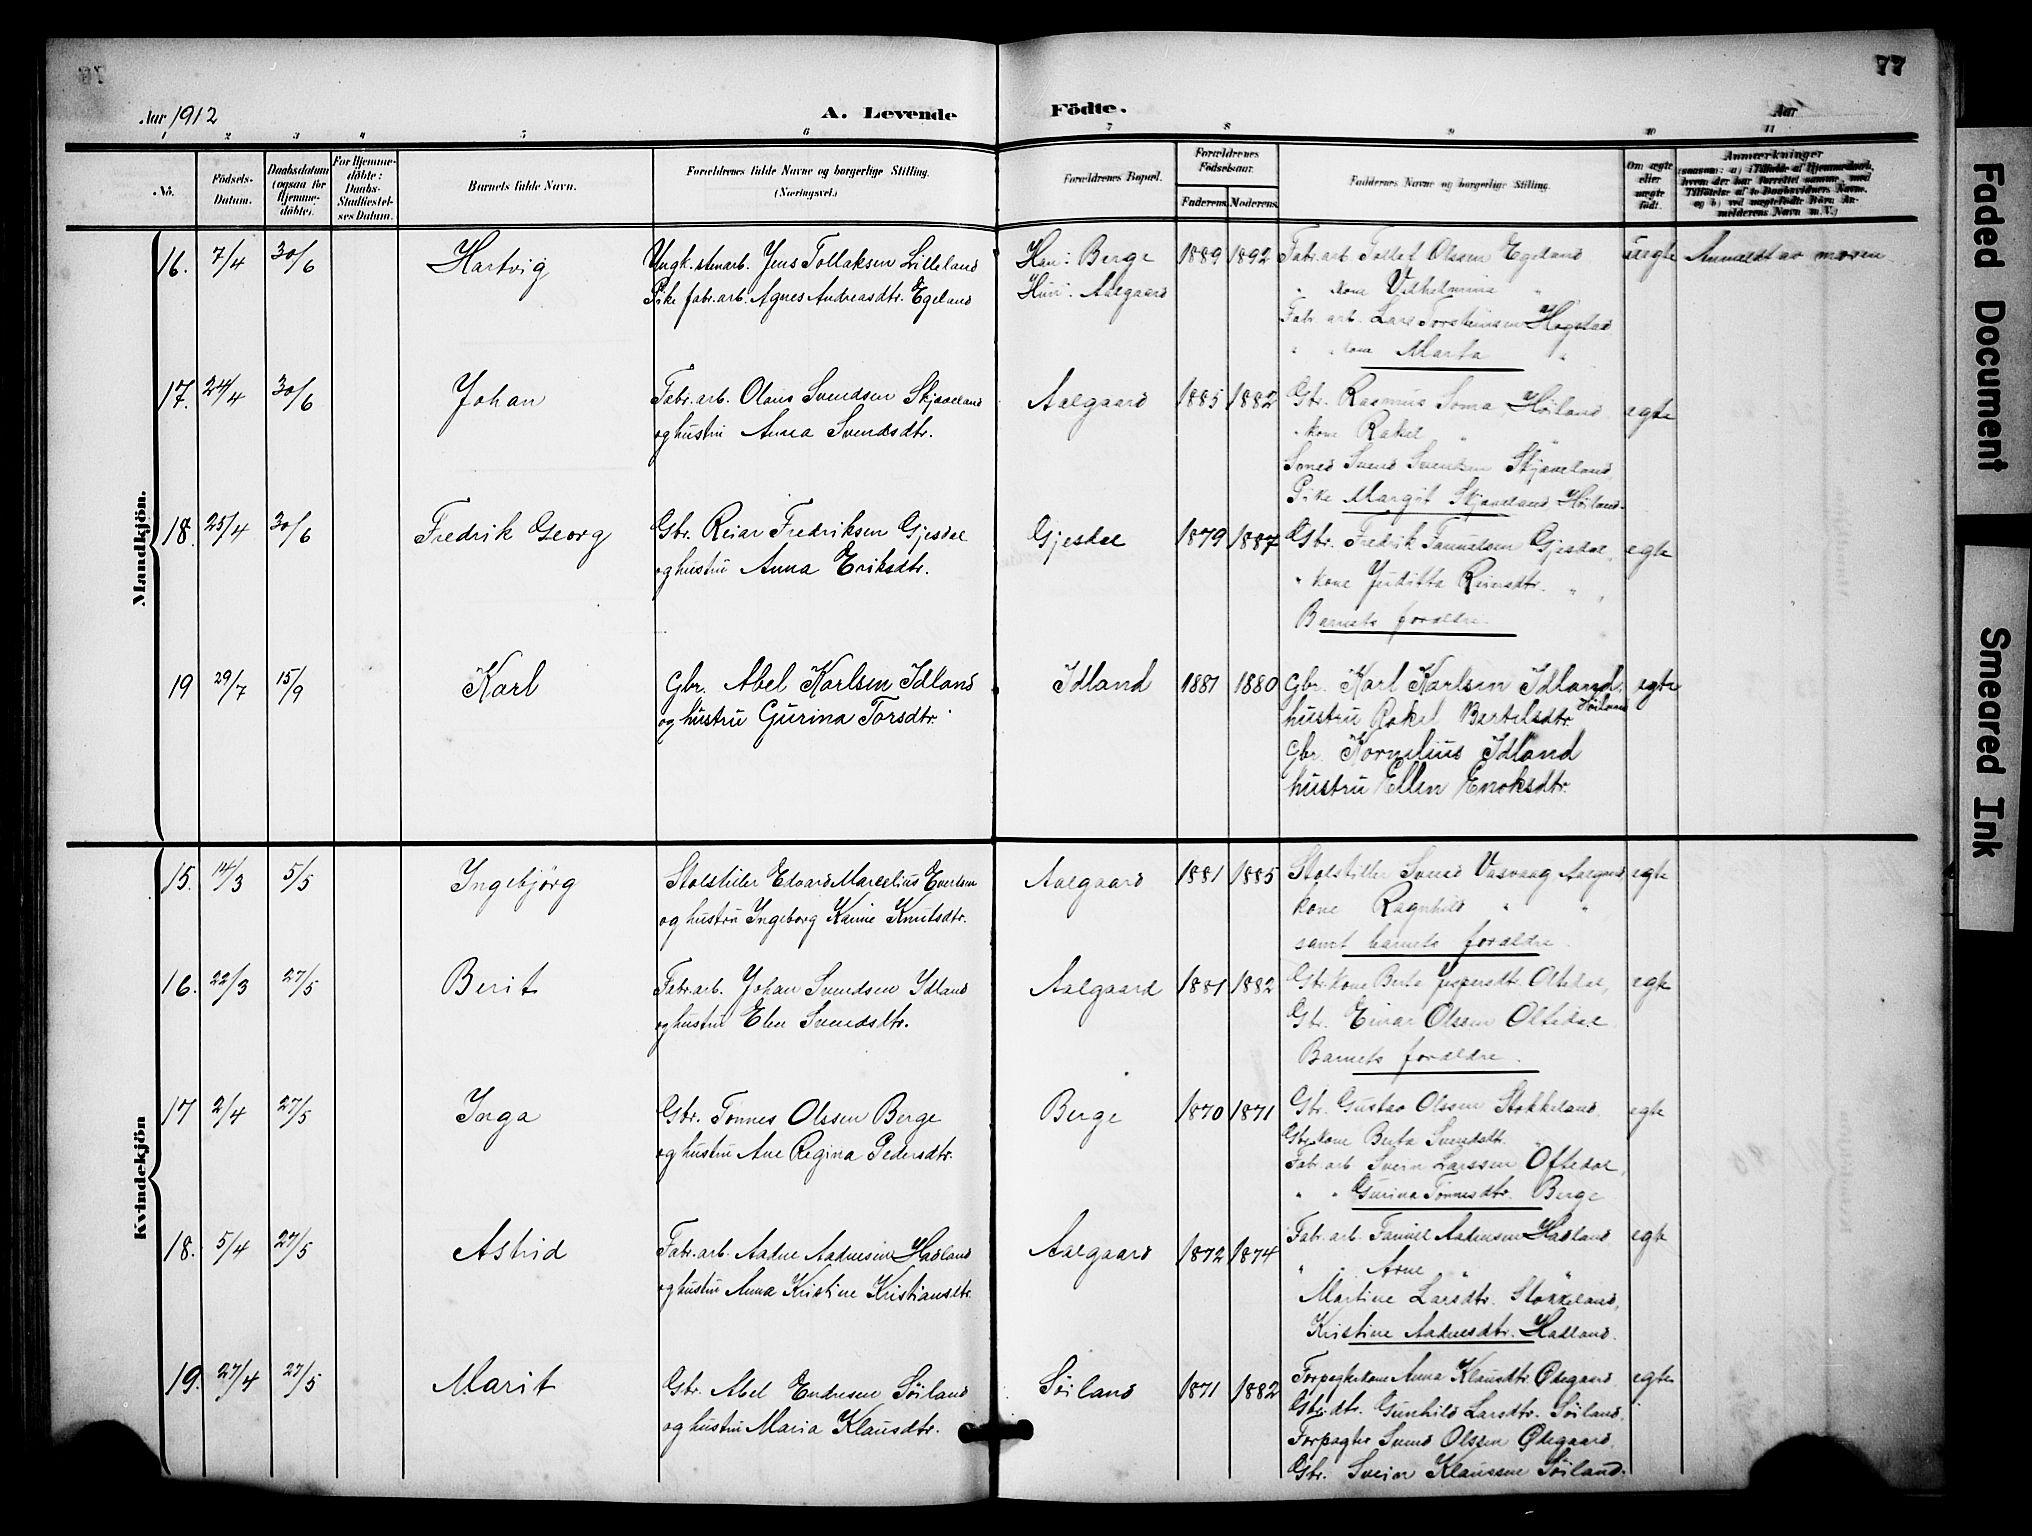 77
Aar 1912
A. Levende
Födte.
Aar
1 2 3 4 5 6 7 8 9 10 11
No.
Födsels-Datum.
Daabsdatum (ogsaa for Hjemmedöbte).
For Hjemmedöbte: Daabs-Stadfæstelses Datum.
Barnets fulde Navn.
Forældrenes fulde Navne og borgerlige Stilling. (Næringsvei.)
Forældrenes Bopæl.
Forældrenes Fødselsaar.
Faderens. Moderens.
Faddernes Navne og borgerlige Stilling.
Om ægte eller uægte födt.
Anmærkninger
Mandkjön.
16. 7/4 30/6 Hartvig
Ungk. stenarb. Jens Tollaksen Lilleland
Pike fabr.arb. Agnes Andreasdtr. Egeland
Han: Berge
Hun: Aalgaard
1889 1892
Fabr.arb. Tollef Olssen Egeland
" kone Vilhelmina "
Fabr. arb. Lars Torsteinsen Høgstad
" " kone Marta "
uegte
Anmeldt av moren
17. 24/4 30/6 Johan
Fabr.arb. Olaus Svendsen Skjæveland
og hustru Anna Svendsdtr.
Aalgaard
1885 1882
Gbr. Rasmus Soma, Høiland,
" kone Rakel " "
Smed Svend Svendsen Skjæveland,
Pike Margit Skjæveland Høiland.
egte
18. 25/4 30/6 Fredrik Georg
Gbr. Reiar Fredriksen Gjesdal
og hustru Anna Eriksdtr.
Gjesdal
1879 1887
Gbr. Fredrik Tønnesen Gjesdal,
" kone Juditta Reiersdtr. "
Barnets foraldre.
egte
19 29/7 15/9 Karl
Gbr. Abel Karlsen Idland
og hustru Gurina Torsdtr.
Idland
1881 1880
Gbr. Karl Karlsen Idland,
hustru Rakel Bertelsdtr. Høiland
Gbr. Kornelius Idland
hustru Ellen Enoksdtr.
egte
Kvindekjön
15. 14/3 5/5 Ingebjörg
Stolstiller Edvard Marcelius Evertsen
og hustru Ingeborg Karine Knutsdtr.
Aalgaard
1881 1885
Stolstiller Svend Vasvaag Aalgaard
kone Ragnhild " "
samt barnets foraldre.
egte
16. 22/3 27/5 Berit
Fabr.arb. Johan Svendsen Ydland
og hustru Elen Svendsdtr.
Aalgaard
1881 1882
Gbr.kone Berta Jespersdtr. Oltedal,
Gbr. Einar Olssen Oltedal
Barnets foraldre.
egte
17 2/4 27/5 Inga
Gbr. Tönnes Olssen Berge
og hustru Ane Regina Pedersdtr.
Berge
1870 1871
Gbr. Gustav Olssen Stokkeland,
Gbr.kone Berta Svendsdtr. "
Fabr. arb. Svein Larssen Oftedal,
" " Gurina Tönnesdtr. Berge
egte
18. 5/4 27/5 Astrid
Fabr.arb. Aadne Aadnesen Hadland
og hustru Anna Kristine Kristiansdtr.
Aalgaard
1872 1874
Fabr.arb. Daniel Aadnesen Hadland
" " Arne " "
Martine Larsdtr. Stokkeland,
Kristine Aadnesdtr. Hadland.
egte
19. 27/4 27/5 Marit
Gbr. Abel Endresen Söiland
og hustru Maria Klausdtr.
Söiland
1871 1882
Forpagterkone Anna Klausdtr. Ødegaard
Gbr.dtr. Gunhild Larsdtr. Söiland,
Forpagter Svend Olssen Ødegaard,
Gbr. Svein Klaussen Söiland.
egte
Faded Document
Smeared Ink